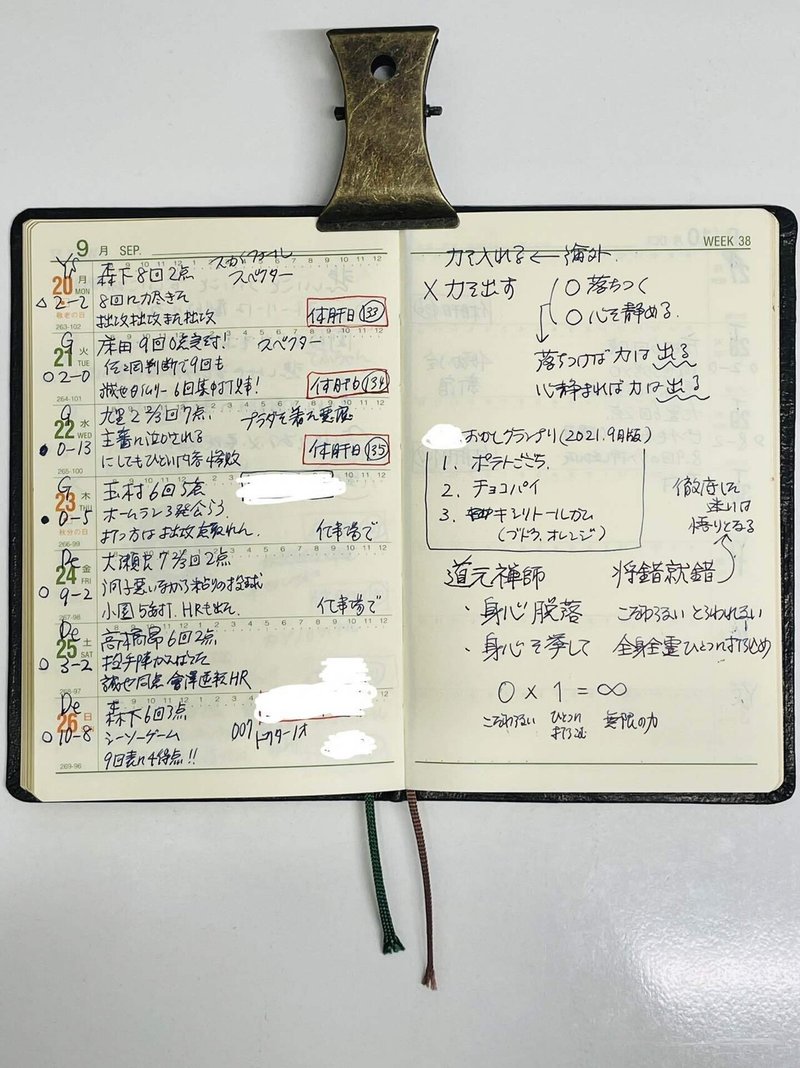 9 月 SEP.
Ys
20 月 MON
敬老の日
263-102
△2-2
森下8回2点
スペクター
8回に力尽きた
拙攻拙攻また拙攻
休肝日 133
G
21 火 TUE
264-101
○2-0
床田 9回0点完封!
スペクター
休肝日 134
G
22 水 WED
265-100
●0-13
九里 2 2/3回7点
プラダを着た悪魔
主審に泣かされる
にしてもひどい内容 4 惨敗
休肝日 135
G
23 木 THU
秋分の日
266-99
●0-5
玉村6回5点
ホームラン3発食らう
打つ方はお故点取れん
仕事場で
De
24 金 FRI
267-98
○9-2
大瀬良7 2/3回2点
調子悪いながら粘りの投球
小園5安打、HRも出た
仕事場で
De
25 土 SAT
268-97
○3-2
高橋昂6回2点
投手陣がんばった
誠也同点 會澤逆転HR
De
26 日
269-96
○10-8
森下6回3点
シーソーゲーム
007 ドクターノオ
9回表に4得点!!
WEEK 38
力を入れる ← 海外
× 力を出す
○ 落ちつく
○ 心を静める
落ちつけば力は出る
心静まれば力は出る
おかしグランプリ(2021.9月版)
1. ポテトごこち
2. チョコパイ
3. キシリトールガム
(ブドウ、オレンジ)
徹底した
迷いは
悟りとなる
道元禅師
将錯就錯
・身心脱落
こだわらない とらわれない
・身心を挙して
全身全霊ひとつに打ち込め
0 × 1 = ∞
こだわらない ひとつに打ち込む 無限の力